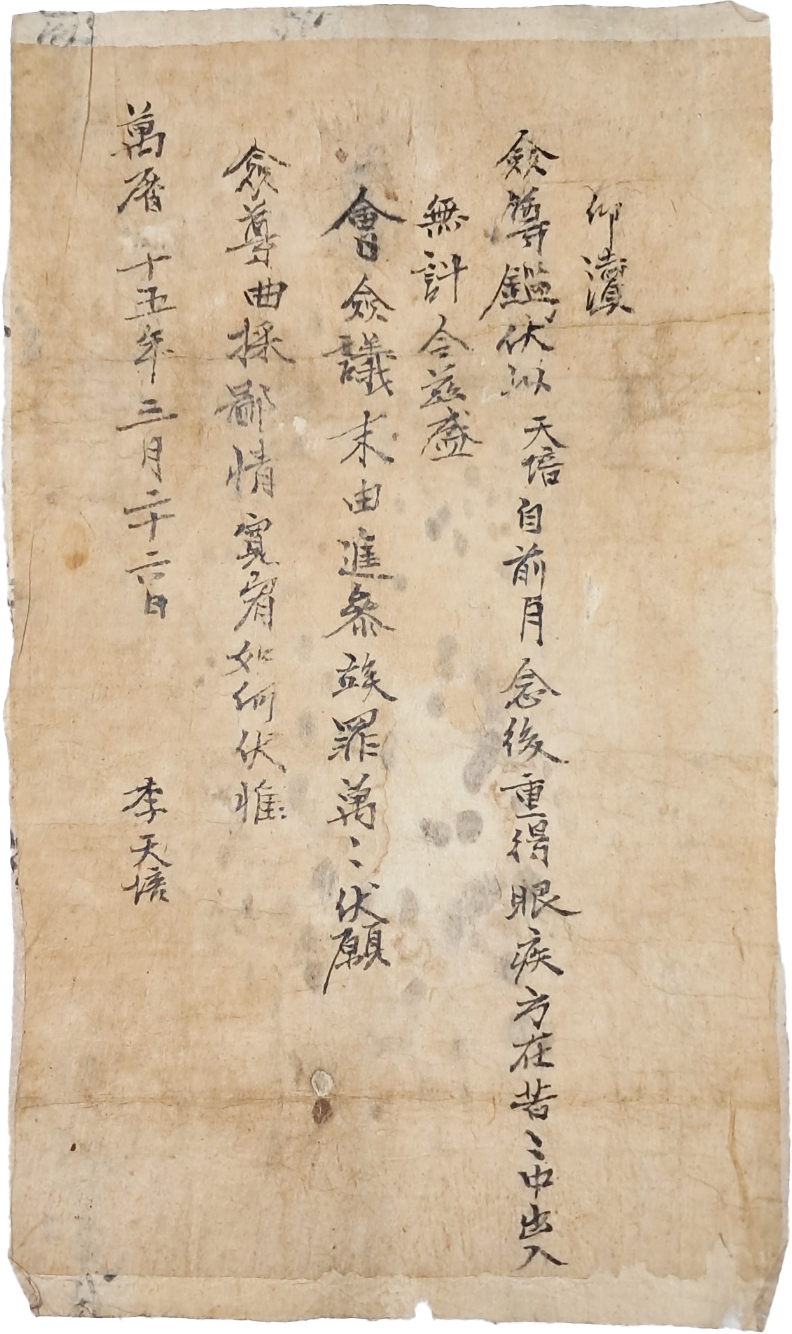 仰瀆
僉尊鑑伏以天培自前月念後重得眼疾方在苦〻中出入
無計今茲盛
會僉議末由進參竢罪萬〻伏願
僉尊曲採鄙情寬宥如何伏惟
萬曆十五年三月二十六日 李天培